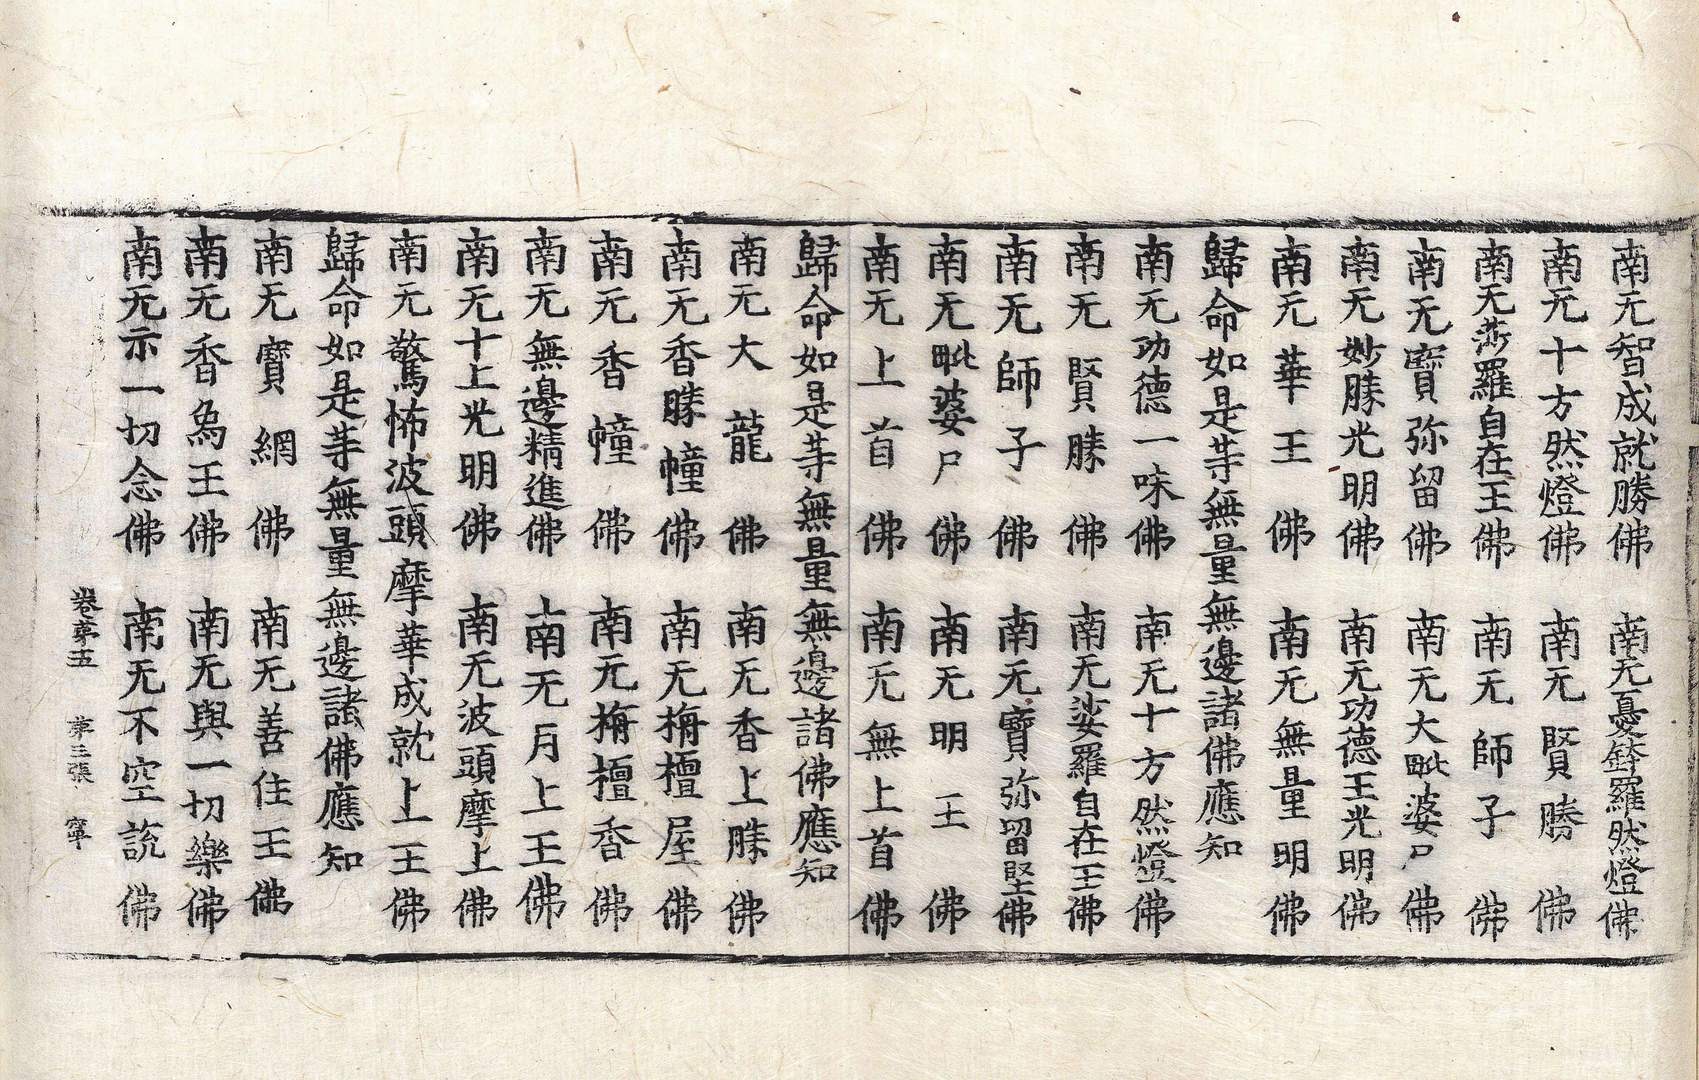 南无智成就勝佛　南无憂鉢羅然燈佛
南无十方然燈佛　南无賢勝佛
南无莎羅自在王佛　南无師子佛
南无寶弥留佛　南无大毗婆尸佛
南无妙勝光明佛　南无功德王光明佛
南无華王佛　南无無量明佛
歸命如是等無量無邊諸佛應知
南无功德一味佛　南无十方然燈佛
南无賢勝佛　南无娑羅自在王佛
南无師子佛　南无寶弥留堅佛
南无毗婆尸佛　南无明王佛
南无上首佛　南无無上首佛
歸命如是等無量無邊諸佛應知
南无大龍佛　南无香上勝佛
南无香勝幢佛　南无栴檀屋佛
南无香幢佛　南无栴檀香佛
南无無邊精進佛　南无月上王佛
南无十上光明佛　南无波頭摩上佛
南无驚怖波頭摩華成就上王佛
歸命如是等無量無邊諸佛應知
南无寶網佛　南无善住王佛
南无香為王佛　南无與一切樂佛
南无示一切念佛　南无不空說佛
卷第五　第三張